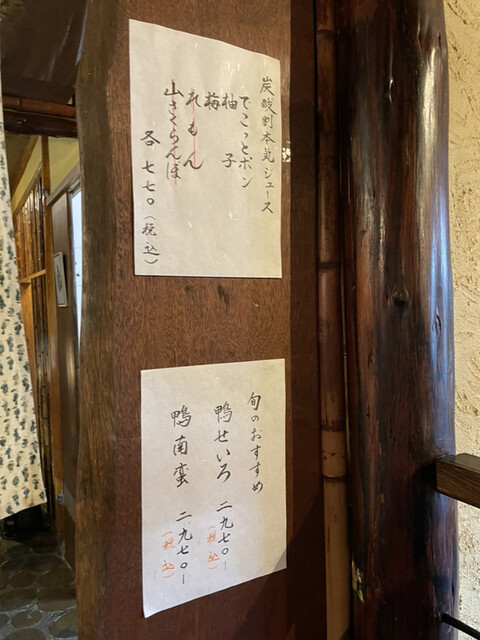 炭酸割本丸ジュース
でこっとポン
柚子
梅
れもん
山さくらんぼ
各 七七〇(税込)
旬のおすすめ
鴨せいろ 二、九七〇-
(税込)
鴨南蛮 二、九七〇-
(税込)